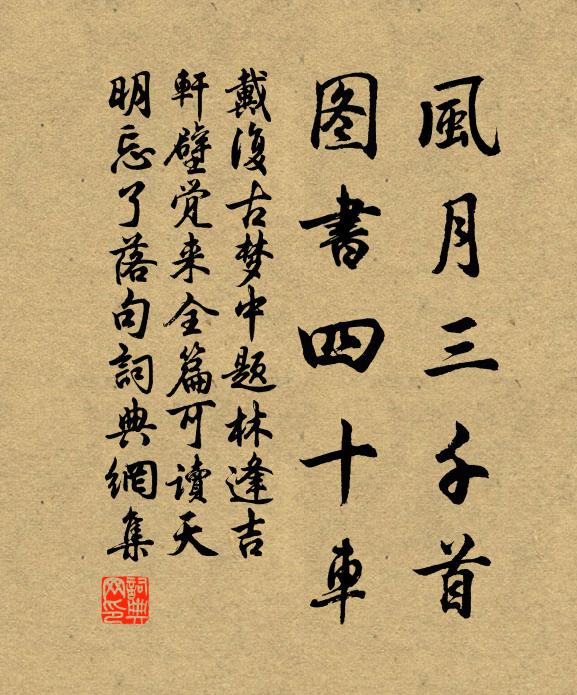 風月三千首
图書四十車
戴復古梦中題林逢吉
軒壁觉来全篇可讀天
明忘了落句詞典網集
詞典网印